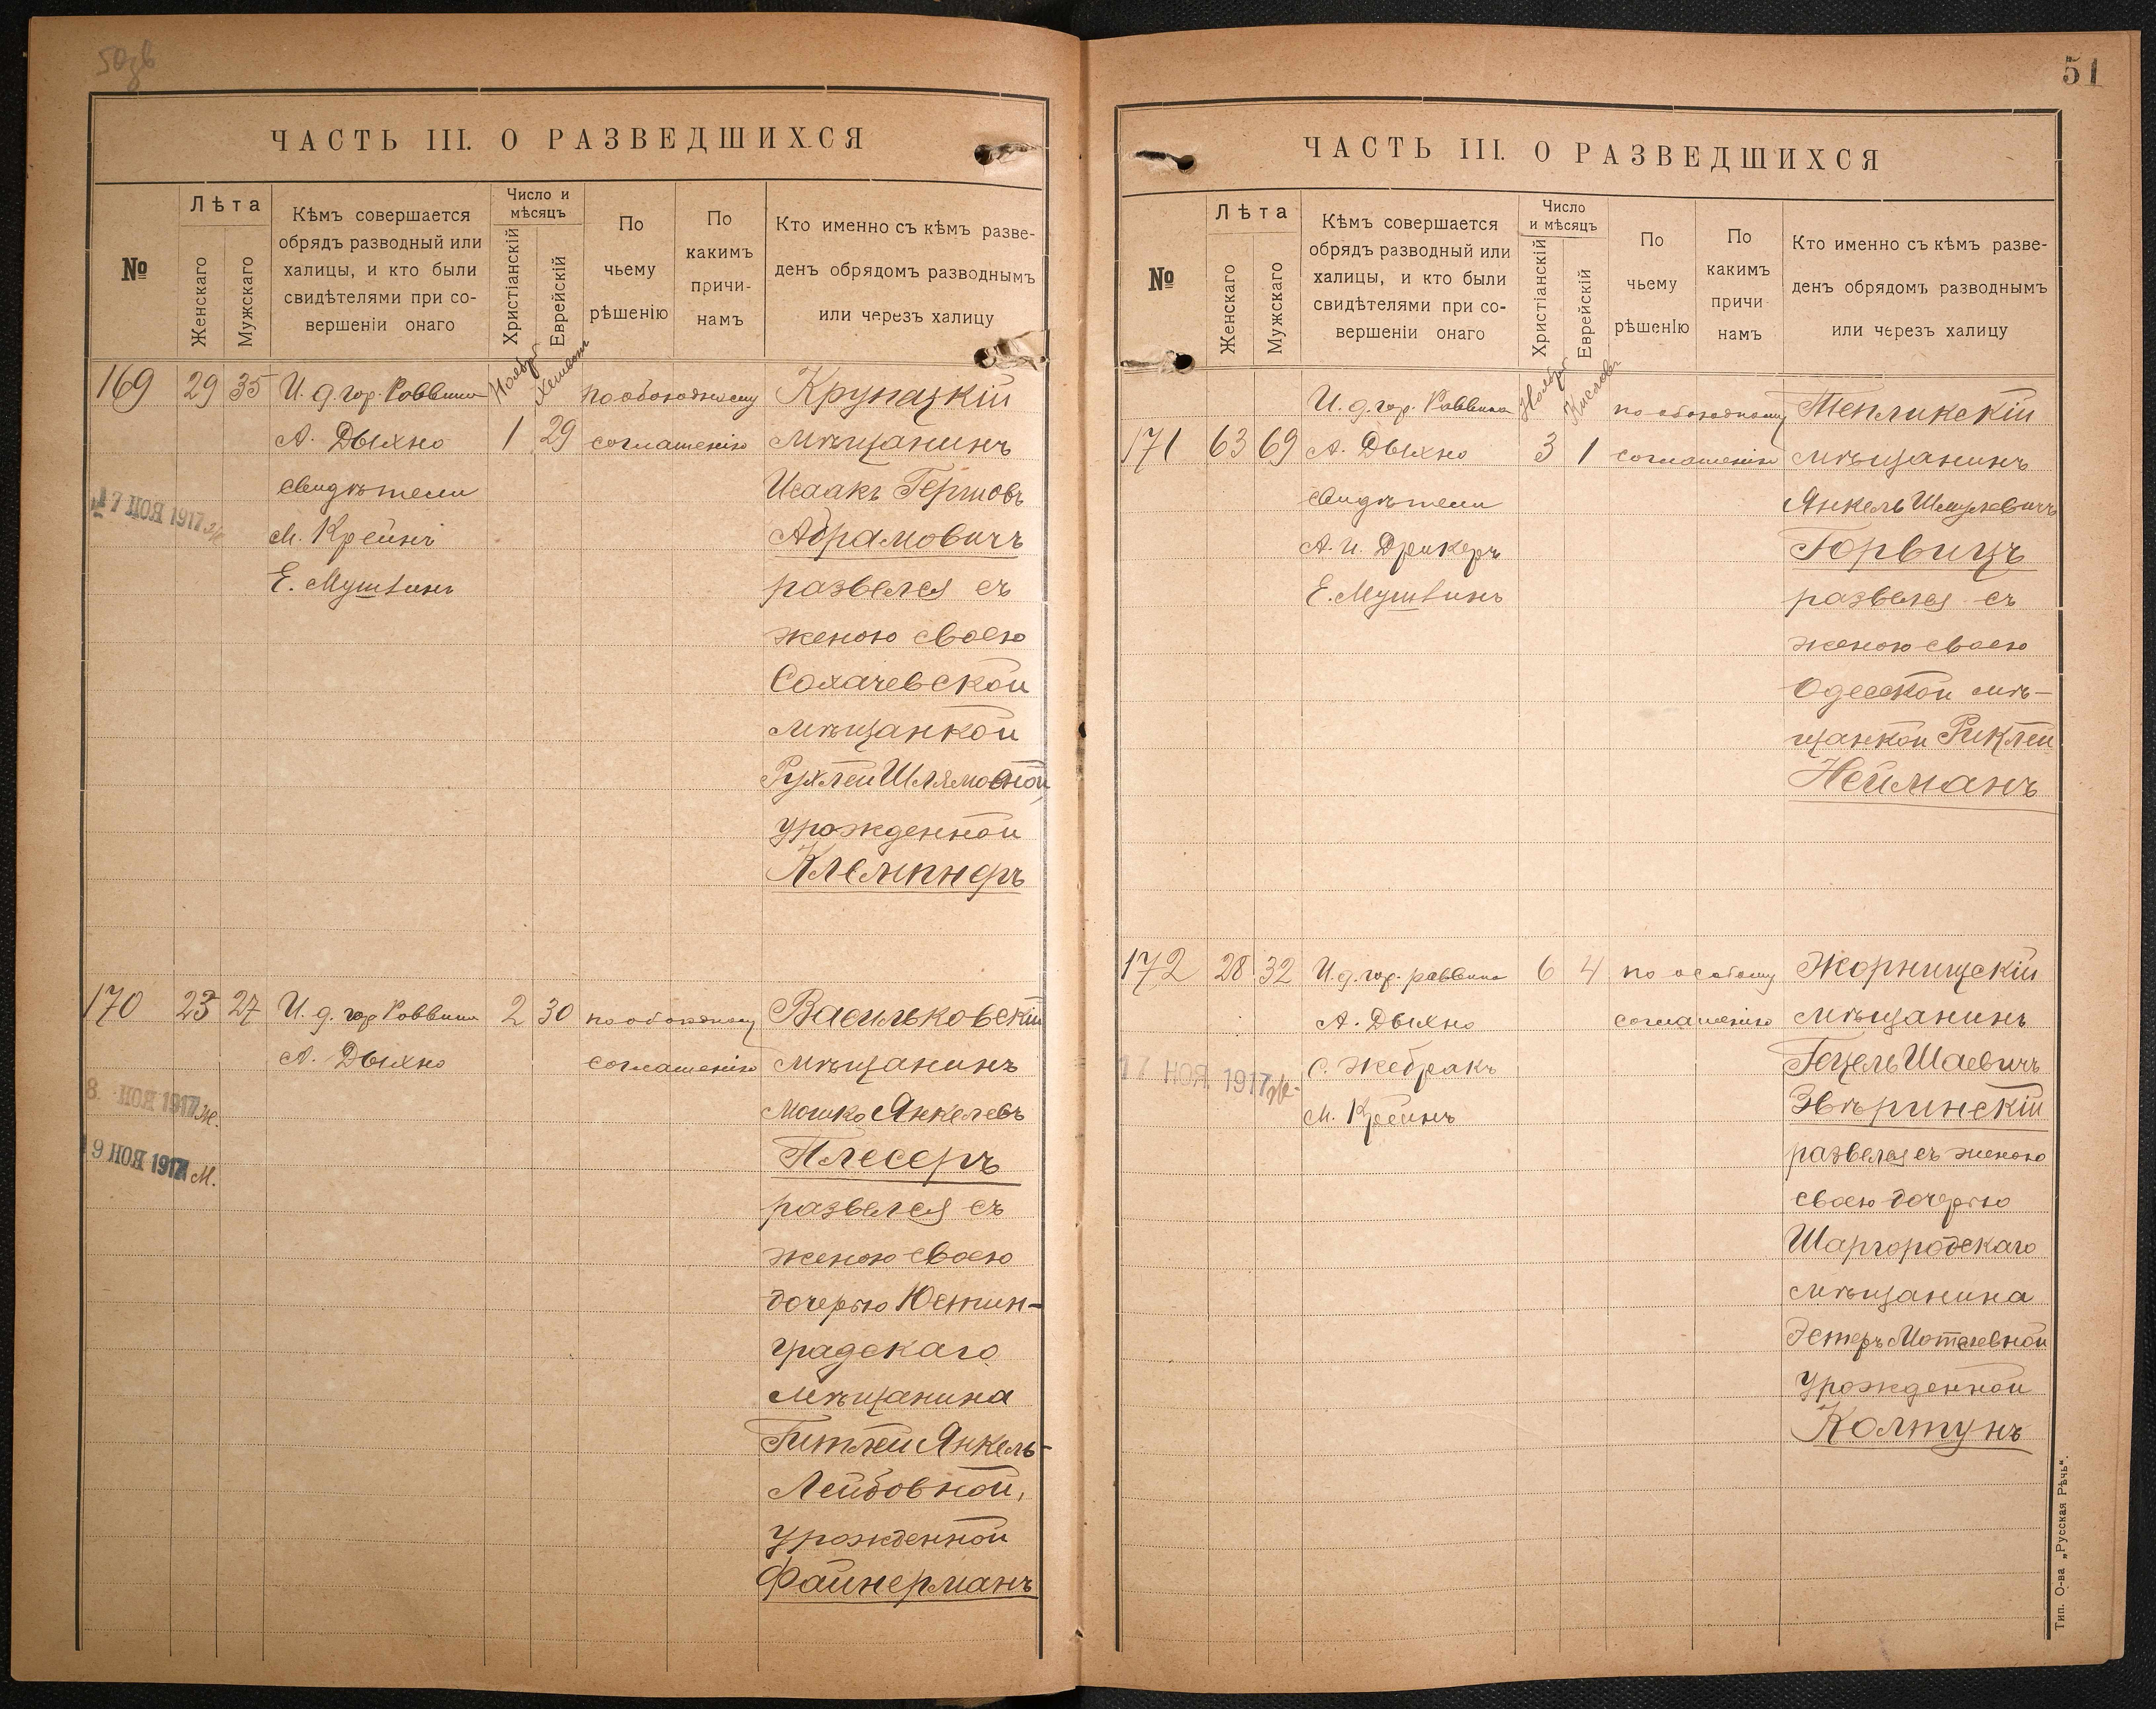 50зв
ЧАСТЬ III. О РАЗВЕДШИХСЯ
№
Лѣта
Женскаго
Мужскаго
Кѣмъ совершается
обрядъ разводный или
халицы, и кто были
свидѣтелями при со-
вершеніи онаго
Число и
мѣсяцъ
Христіанскій
Еврейскій
По
чьему
рѣшенію
По
какимъ
причи-
намъ
Кто именно съ кѣмъ разве-
денъ обрядомъ разводнымъ
или черезъ халицу
Ноября
Хешвон
169 29 35 И. д. гор. Раввина по обоюдному Крупецкій
А. Дыхно 1 29 соглашенію мѣщанинъ
свидѣтели Исаакъ Гершовъ
17 НОЯ 1917
М. Крейнъ Абрамовичъ
Е. Мушвинъ развелся съ
женою своею
Сохачевской
мѣщанкой
Рухлей Шлямовной,
урожденной
Клемпнеръ
170 23 27 И. д. гор Раввина 2 30 по обоюдному Васильковскій
А. Дыхно соглашенію мѣщанинъ
8. НОЯ 1917 Ж.
Мошко Янкелевъ
9 НОЯ 1917 М.
Плесеръ
развелся съ
женою своею
дочерью Юстин-
градскаго
мѣщанина
Гитлей Янкель-
Лейбовной,
урожденной
Файнерманъ
51
ЧАСТЬ III. О РАЗВЕДШИХСЯ
№
Лѣта
Женскаго
Мужскаго
Кѣмъ совершается
обрядъ разводный или
халицы, и кто были
свидѣтелями при со-
вершеніи онаго
Число
и мѣсяцъ
Христіанскій
Еврейскій
По
чьему
рѣшенІю
По
какимъ
причи
намъ
Кто именно съ кѣмъ разве-
денъ обрядомъ разводнымъ
или черезъ халицу
Ноября
Кислева
И. д. гор. Раввина по обоюдному Тепликскій
171 63 69 А. Дыхно 3 1 соглашенію мѣщанинъ
свидѣтели Янкель Шмулевичъ
А. И. Дрикеръ Горвицъ
Е. Мушвинъ развелся съ
женою своею
Одесской мѣ-
щанкой Риклей
Нейманъ
172 28 32 И. д. гор. раввина 6 4 по особому Жорнищскій
А. Дыхно соглашенію мѣщанинъ
17 НОЯ 1917 Ж-
С. Жебракъ Гецель Шаевичъ
М. Крейнъ Звѣринскій
развелся съ женою
своею дочерью
Шаргородскаго
мѣщанина
Эстеръ Мотелевной
урожденной
Колтунъ
Тип. О-ва „Русская Рѣчь“.